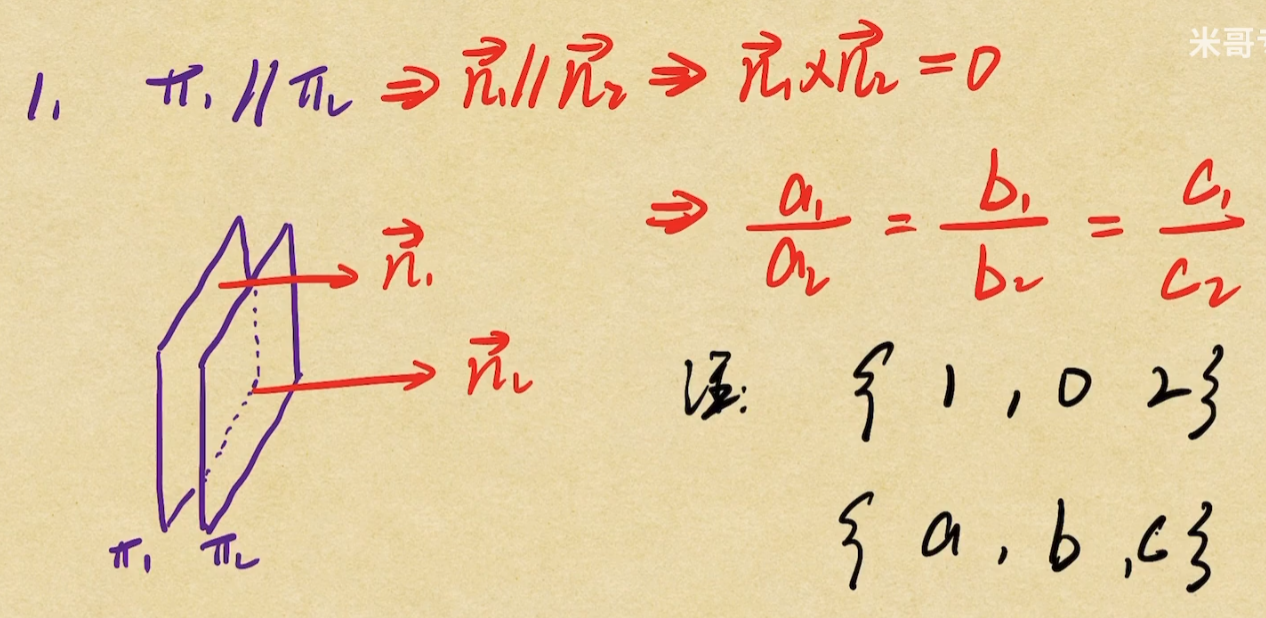 米哥
1. π₁ // π₂ ⇒ n⃗₁ // n⃗₂ ⇒ n⃗₁ × n⃗₂ = 0
⇒ a₁/a₂ = b₁/b₂ = c₁/c₂
n⃗₁
n⃗₂
注: { 1 , 0 2 }
{ a , b , c }
π₁ π₂